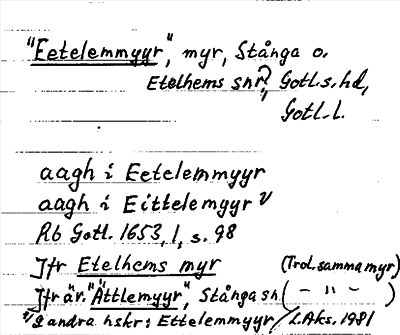 "Eetelemmyyr", myr, Stånga o.
Etelhems snr?, Gotl.s.hd,
Gotl.l.
aagh i Eetelemmyyr
aagh i Eittelemgyr 1)
Rb Gotl. 1653, 1, s. 98
Jfr Etelhems myr (Trol. samma myr)
Jfr är. "Ättlemyyr", Stånga sn. ( - " - )
1) 2 andra hskr: Ettelemmyyr / L.Aks. 1981